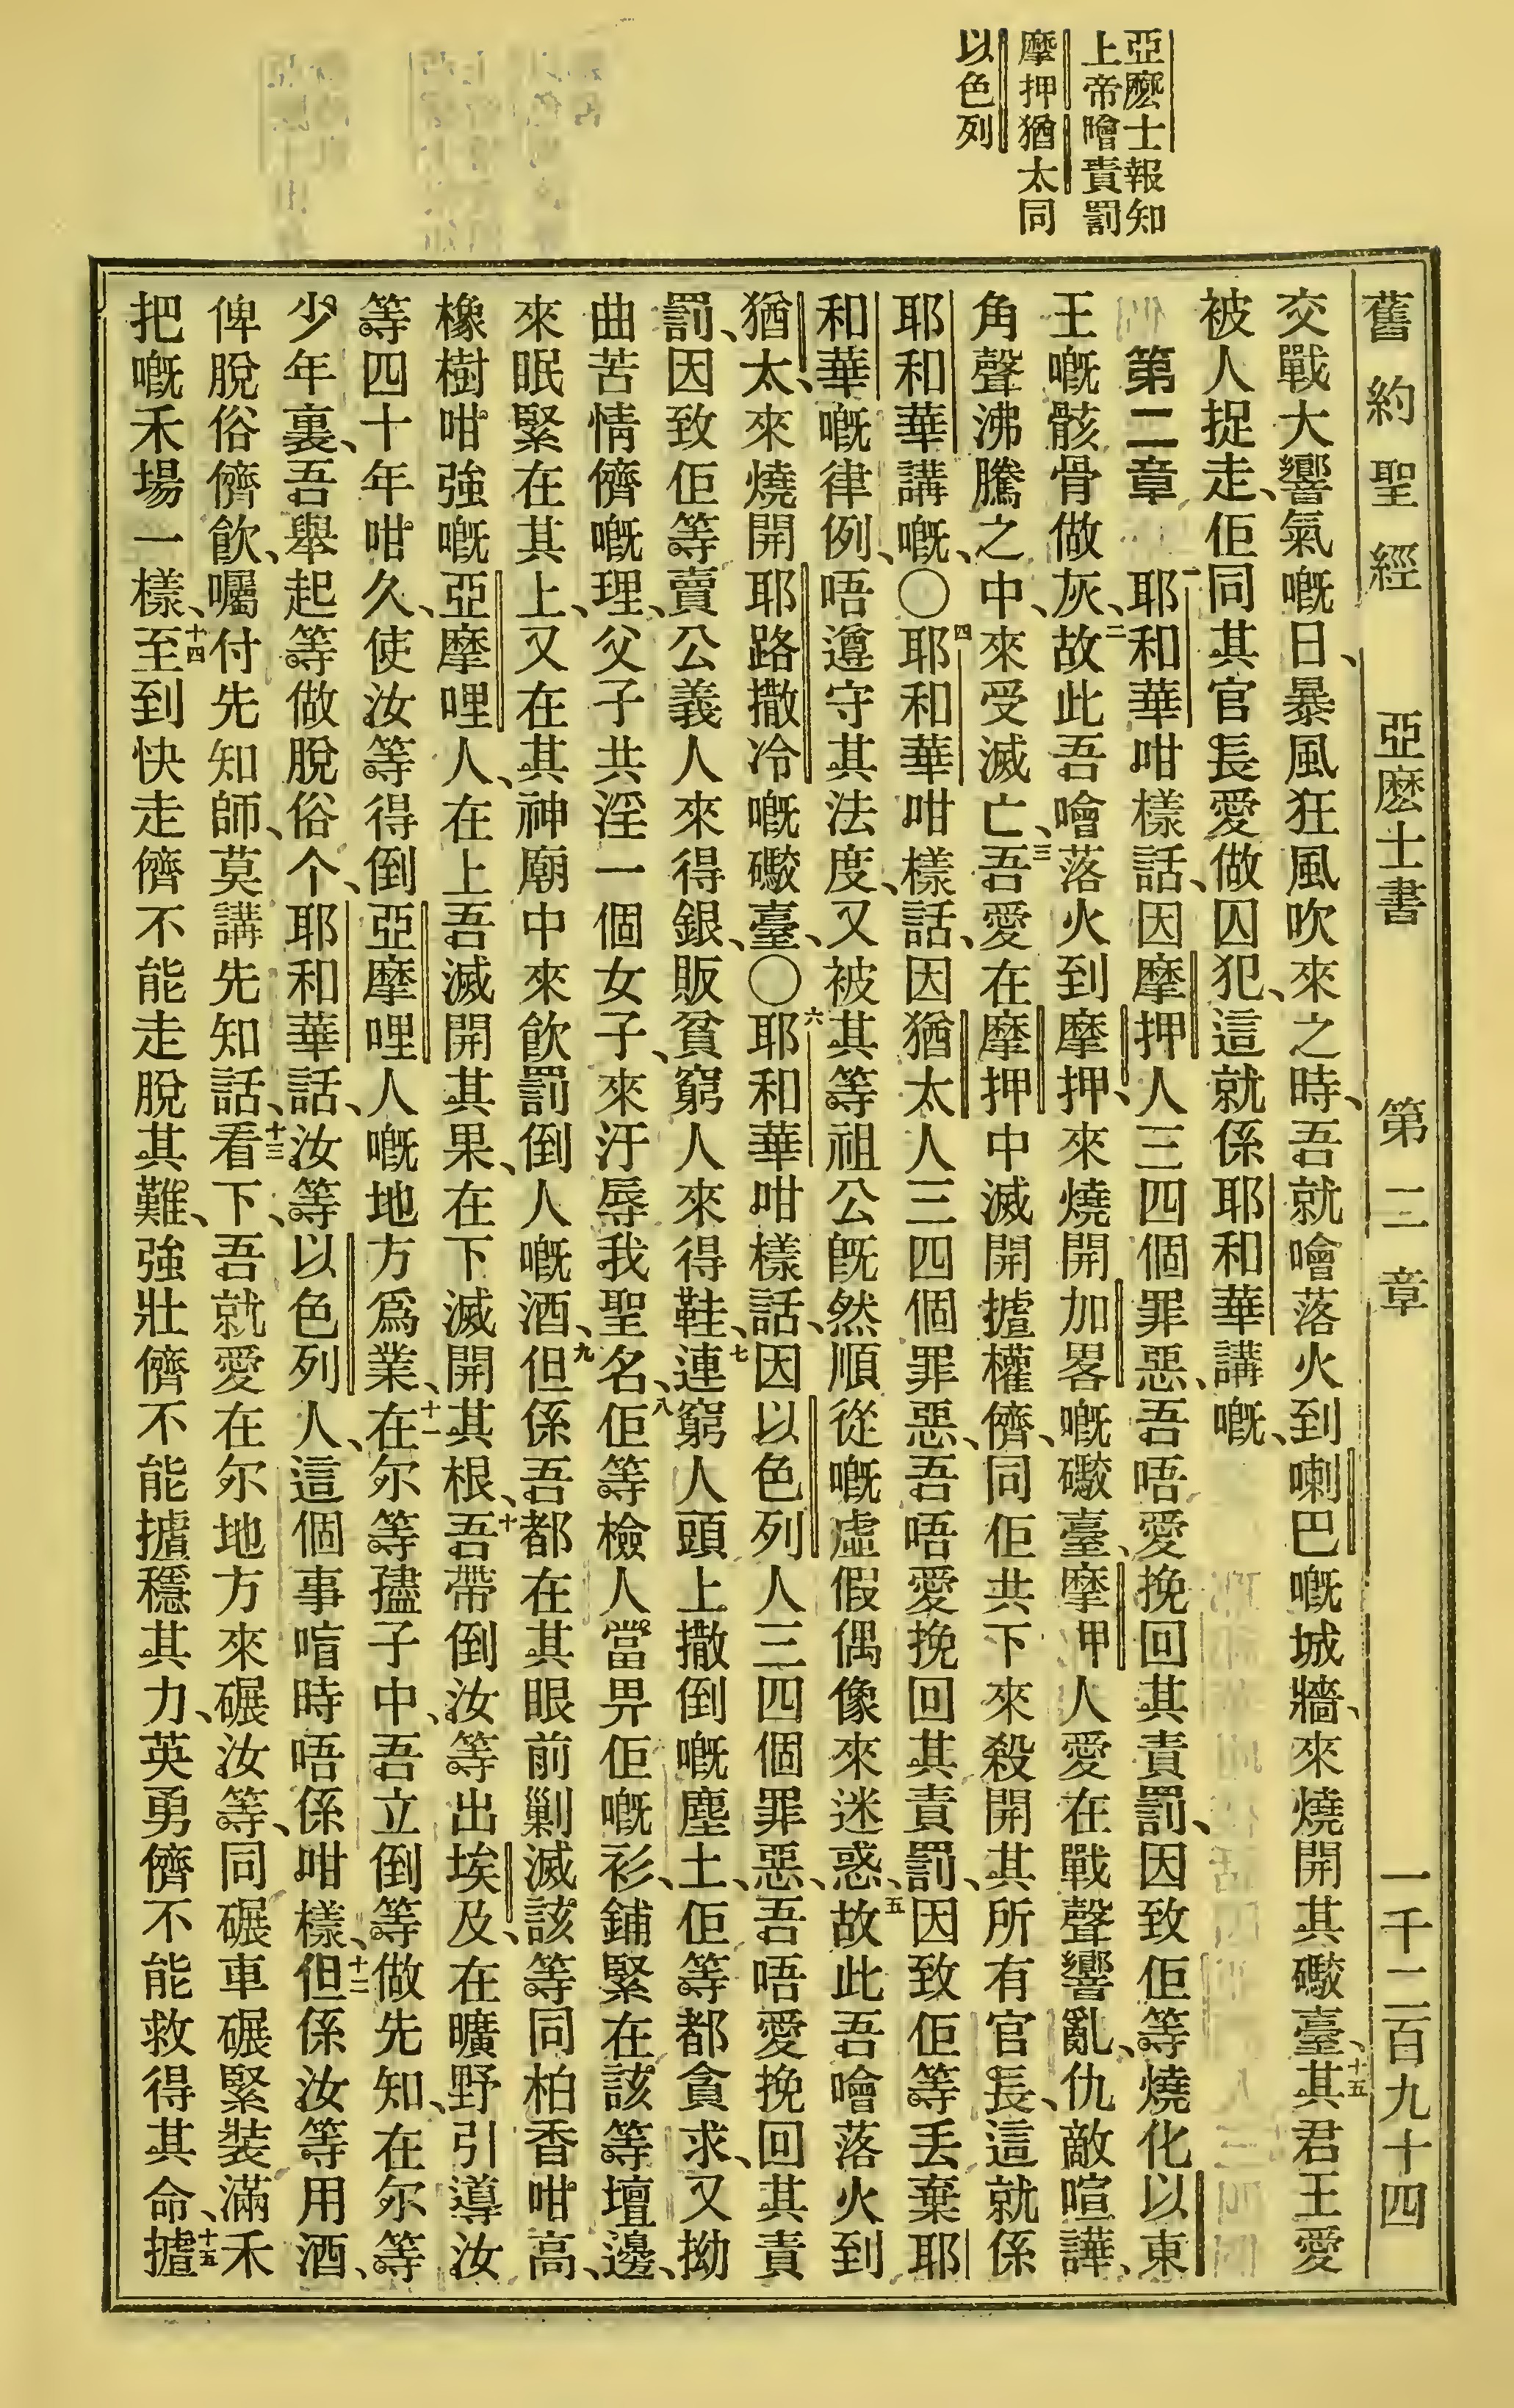 亞麼士報知
上帝噲責罰
摩押猶太同
以色列
舊約聖經 亞麼士書 第二章 一千二百九十四
交戰大響氣嘅日、暴風狂風吹來之時、吾就噲落火到喇巴嘅城牆、來燒開其礮臺、十五其君王愛
被人捉走、佢同其官長愛做囚犯、這就係耶和華講嘅、
第二章 一耶和華咁樣話、因摩押人三四個罪惡、吾唔愛挽回其責罰、因致佢等燒化以東
王嘅骸骨做灰、二故此吾噲落火到摩押、來燒開加畧嘅礮臺、摩押人愛在戰聲響亂、仇敵喧譁、
角聲沸騰之中、來受滅亡、三吾愛在摩押中滅開攎權儕、同佢共下來殺開其所有官長、這就係
耶和華講嘅、〇四耶和華咁樣話、因猶太人三四個罪惡、吾唔愛挽回其責罰、因致佢等丢棄耶
和華嘅律例、唔遵守其法度、又被其等祖公旣然順從嘅虛假偶像來迷惑、五故此吾噲落火到
猶太、來燒開耶路撒冷嘅礮臺、〇六耶和華咁樣話、因以色列人三四個罪惡、吾唔愛挽回其責
罰、因致佢等賣公義人來得銀、販貧窮人來得鞋、七連窮人頭上撒倒嘅塵土、佢等都貪求、又拗
曲苦情儕嘅理、父子共淫一個女子、來汙辱我聖名、八佢等檢人當畀佢嘅衫、鋪緊在該等壇邊、
來眠緊在其上、又在其神廟中來飮罰倒人嘅酒、九但係吾都在其眼前剿滅該等同柏香咁高、
橡樹咁強嘅亞摩哩人、在上吾滅開其果、在下滅開其根、十吾帶倒汝等出埃及、在曠野引導汝
等四十年咁久、使汝等得倒亞摩哩人嘅地方爲業、十一在尔等孻子中、吾立倒等做先知、在尔等
少年裏、吾舉起等做脫俗个、耶和華話、汝等以色列人、這個事喑時唔係咁樣、十二但係汝等用酒、
俾脫俗儕飮、囑付先知師、莫講先知話、十三看下、吾就愛在尔地方來碾汝等、同碾車碾緊裝滿禾
把嘅禾場一樣、十四至到快走儕不能走脫其難、強壯儕不能攎穩其力、英勇儕不能救得其命、十五攎